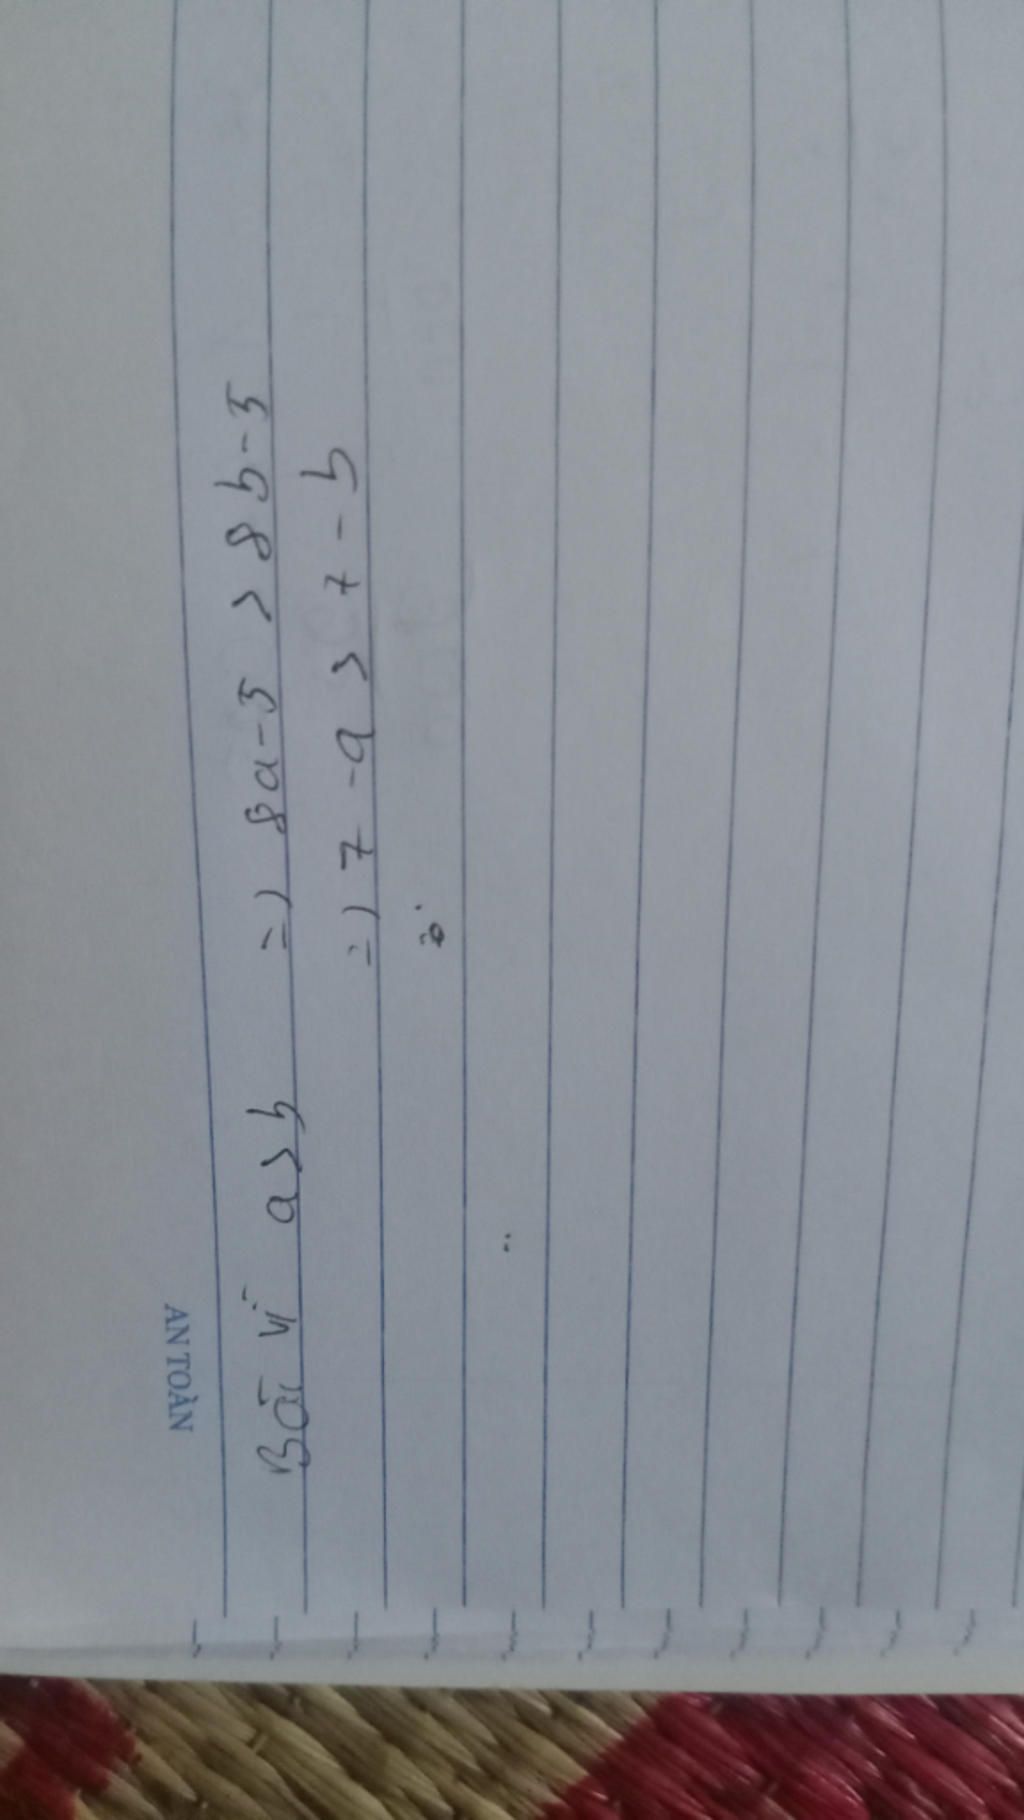 AN TOÀN
Bởi vì a>b => 8a-5 > 8b-5
=> 7-a > 7-b